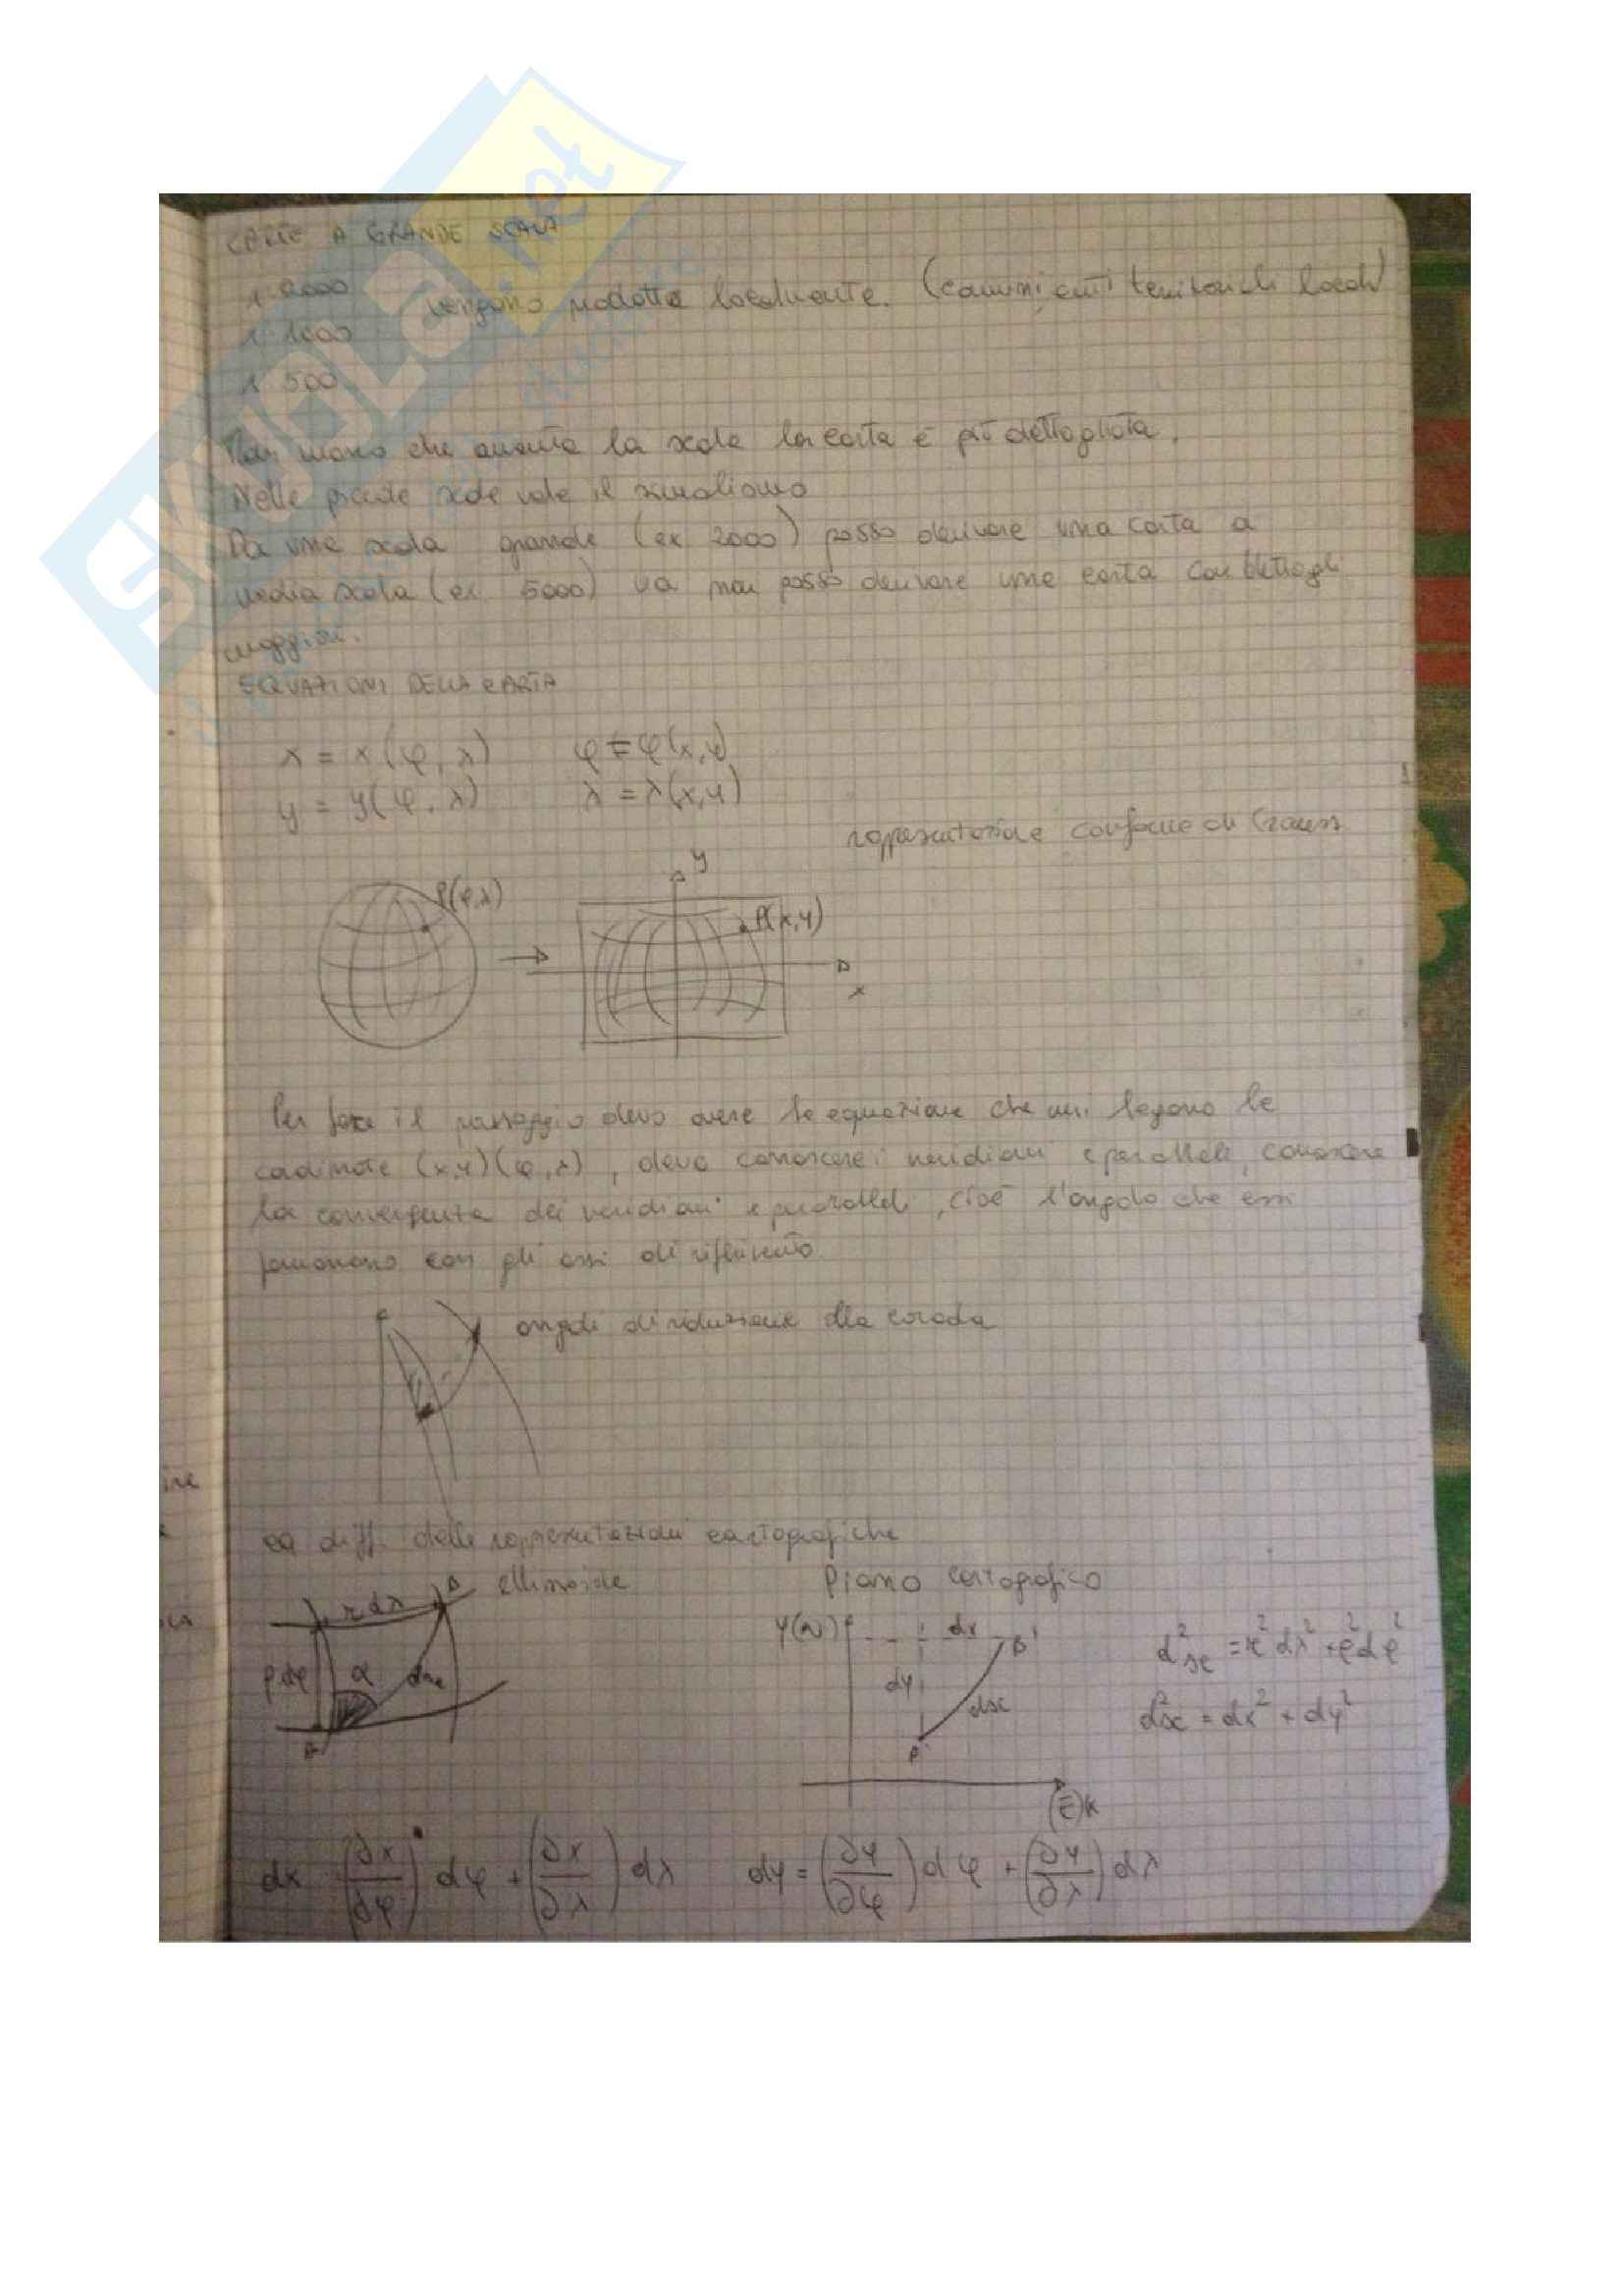 CARTE A GRANDE SCALA
1 2000
vengono prodotte localmente. (comuni, enti territoriali locali)
1 1000
1 500
Man mano che aumenta la scala la carta è più dettagliata.
Nelle piccole scale vale il simbolismo
Da una scala grande (ex 2000) posso derivare una carta a
media scala (ex. 5000) ma non posso derivare una carta con dettagli
maggiori.
EQUAZIONI DELLA CARTA
x = x(φ, λ) φ = φ(x,y)
y = y(φ, λ) λ = λ(x,y)
rappresentazione conforme di Gauss
y
P(φ,λ)
P(x,y)
x
Per fare il passaggio devo avere le equazione che mi legano le
coordinate (x,y)(φ,λ), devo conoscere i meridiani e paralleli, conoscere
la convergenza dei meridiani e paralleli, cioè l'angolo che essi
formano con gli assi di riferimento
angoli di riduzione alla corda
eq diff. delle rappresentazioni cartografiche
ellissoide Piano cartografico
r dλ B
ρ dφ α dse
Y(N) dx B'
dy dsc
P'
(E)X
d²se = r²dλ² + ρ²dφ²
d²sc = dx² + dy²
dx (∂x/∂φ) dφ + (∂x/∂λ) dλ dy = (∂y/∂φ) dφ + (∂y/∂λ) dλ
SKUOLA.net